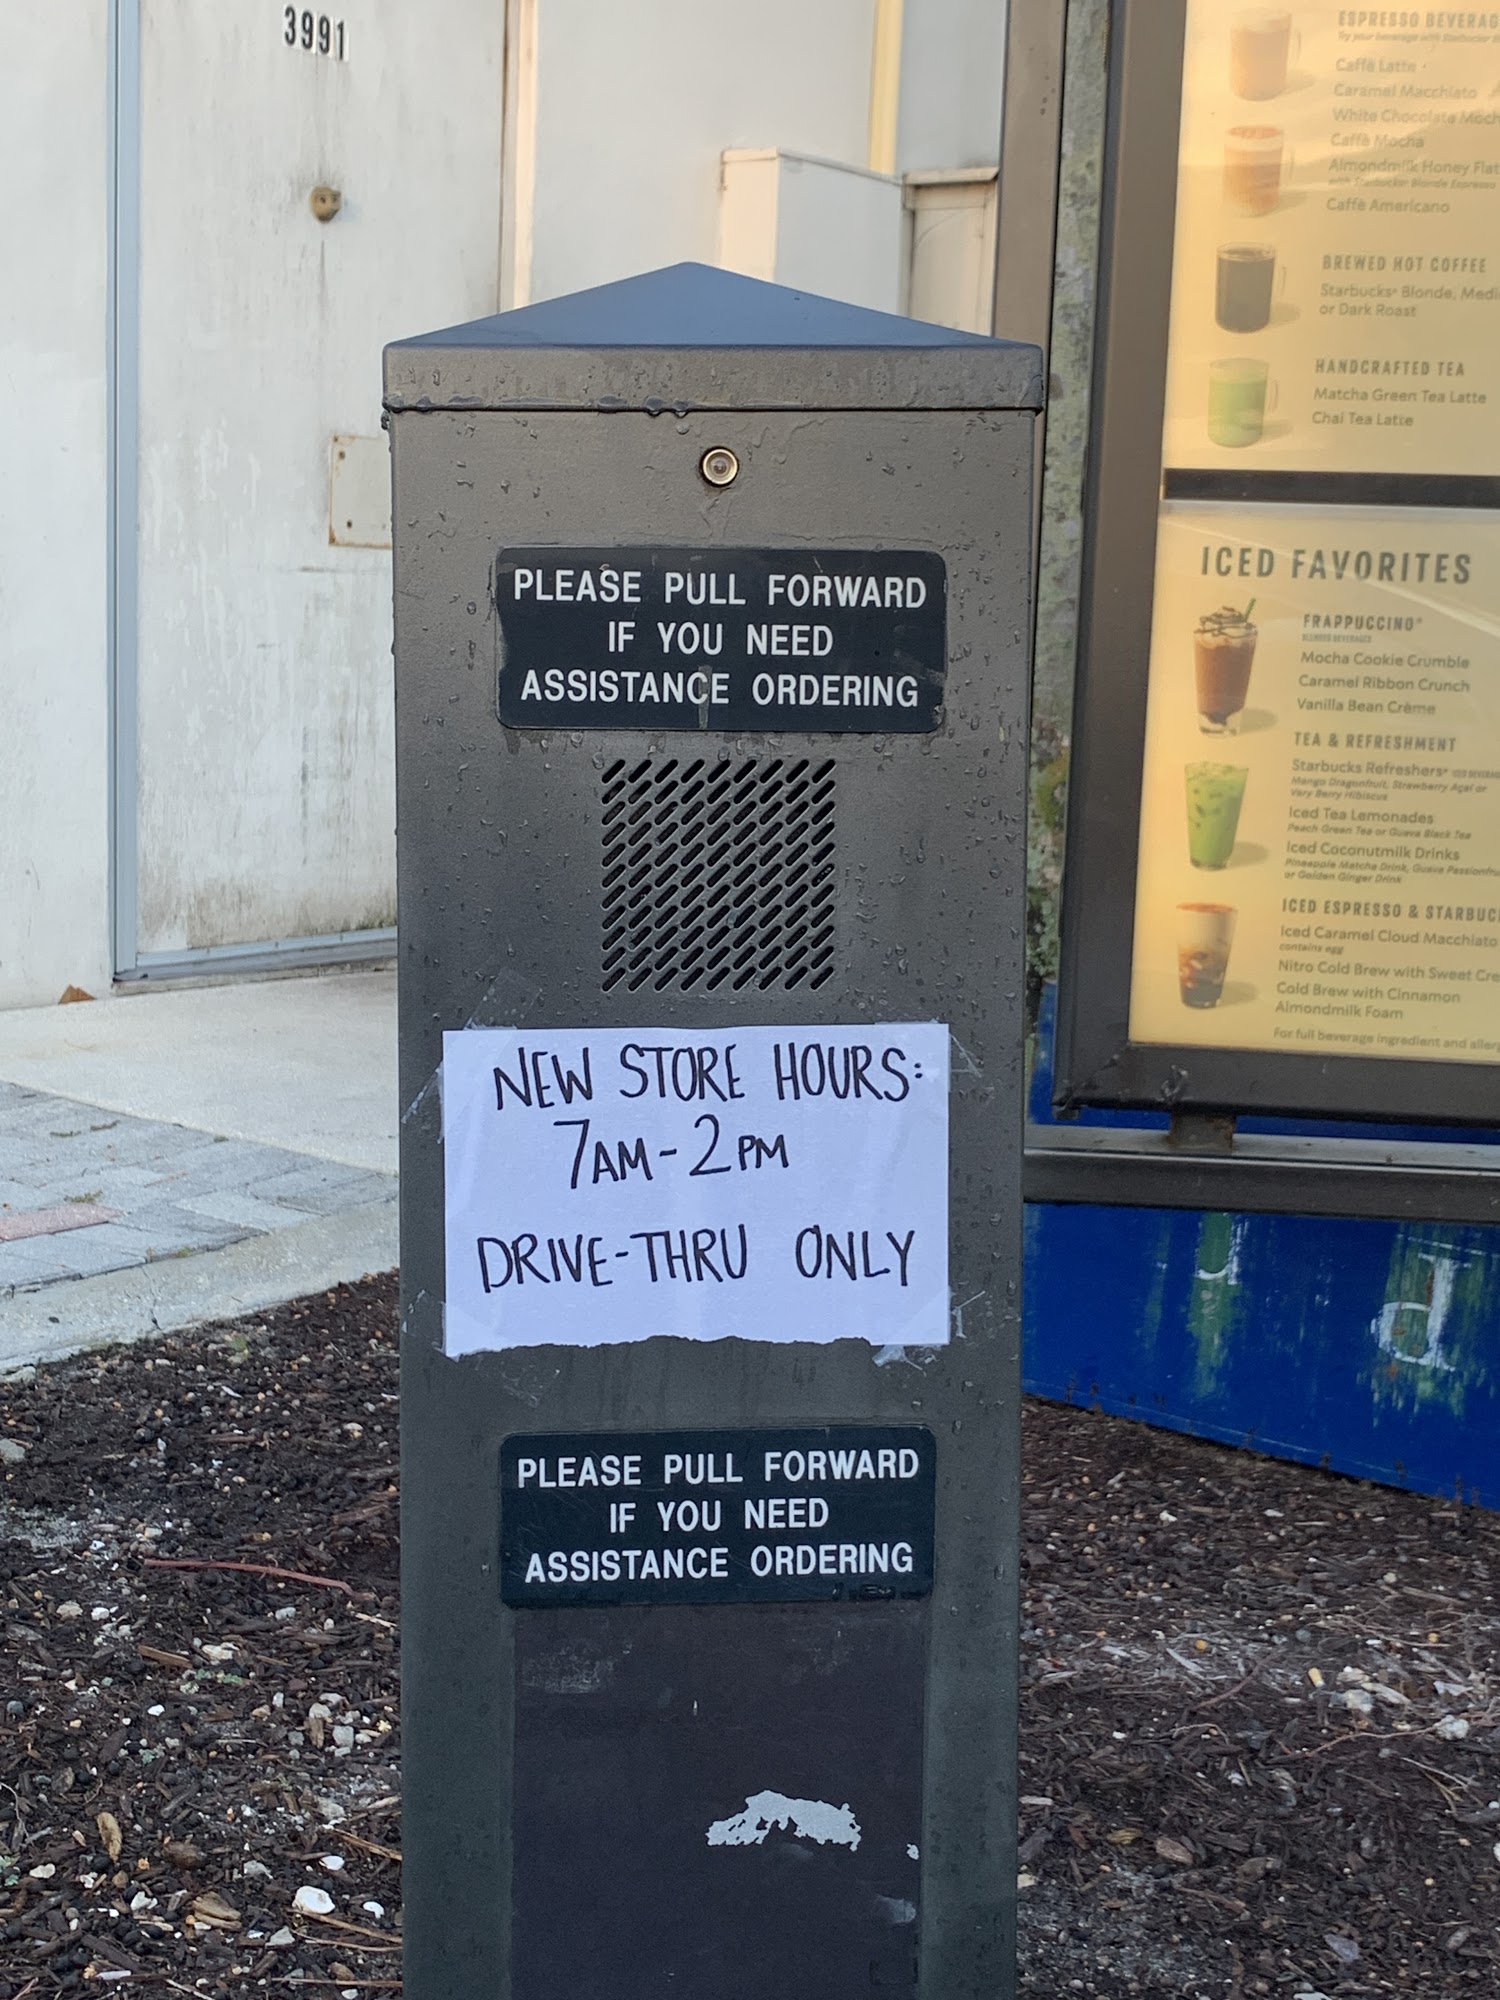 3991
PLEASE PULL FORWARD
IF YOU NEED
ASSISTANCE ORDERING
NEW STORE HOURS:
7AM-2PM
DRIVE-THRU ONLY
PLEASE PULL FORWARD
IF YOU NEED
ASSISTANCE ORDERING
ESPRESSO BEVERAG
Caffè Latte
Caramel Macchiato
White Chocolate Moch
Caffè Mocha
Almondmilk Honey Flat
with Starbucks Blonde Espresso
Caffè Americano
BREWED HOT COFFEE
Starbucks® Blonde, Medi
or Dark Roast
HANDCRAFTED TEA
Matcha Green Tea Latte
Chai Tea Latte
ICED FAVORITES
FRAPPUCCINO®
BLENDED BEVERAGES
Mocha Cookie Crumble
Caramel Ribbon Crunch
Vanilla Bean Crème
TEA & REFRESHMENT
Starbucks Refreshers® ICED
Mango Dragonfruit, Strawberry Açaí or
Very Berry Hibiscus
Iced Tea Lemonades
Peach Green Tea or Guava Black Tea
Iced Coconutmilk Drinks
Pineapple Matcha Drink, Guava Passionfru
or Golden Ginger Drink
ICED ESPRESSO & STARBUC
Iced Caramel Cloud Macchiato
contains egg
Nitro Cold Brew with Sweet Cre
Cold Brew with Cinnamon
Almondmilk Foam
For full beverage ingredient and aller